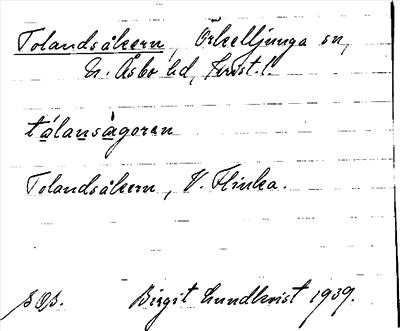 Tolandsåkern, Örkelljunga sn,
N. Åsbo hd, Krist. l.
tålansågoren
Tolandsåkern, V. Flinka.
Birgit Lundkvist 1939.